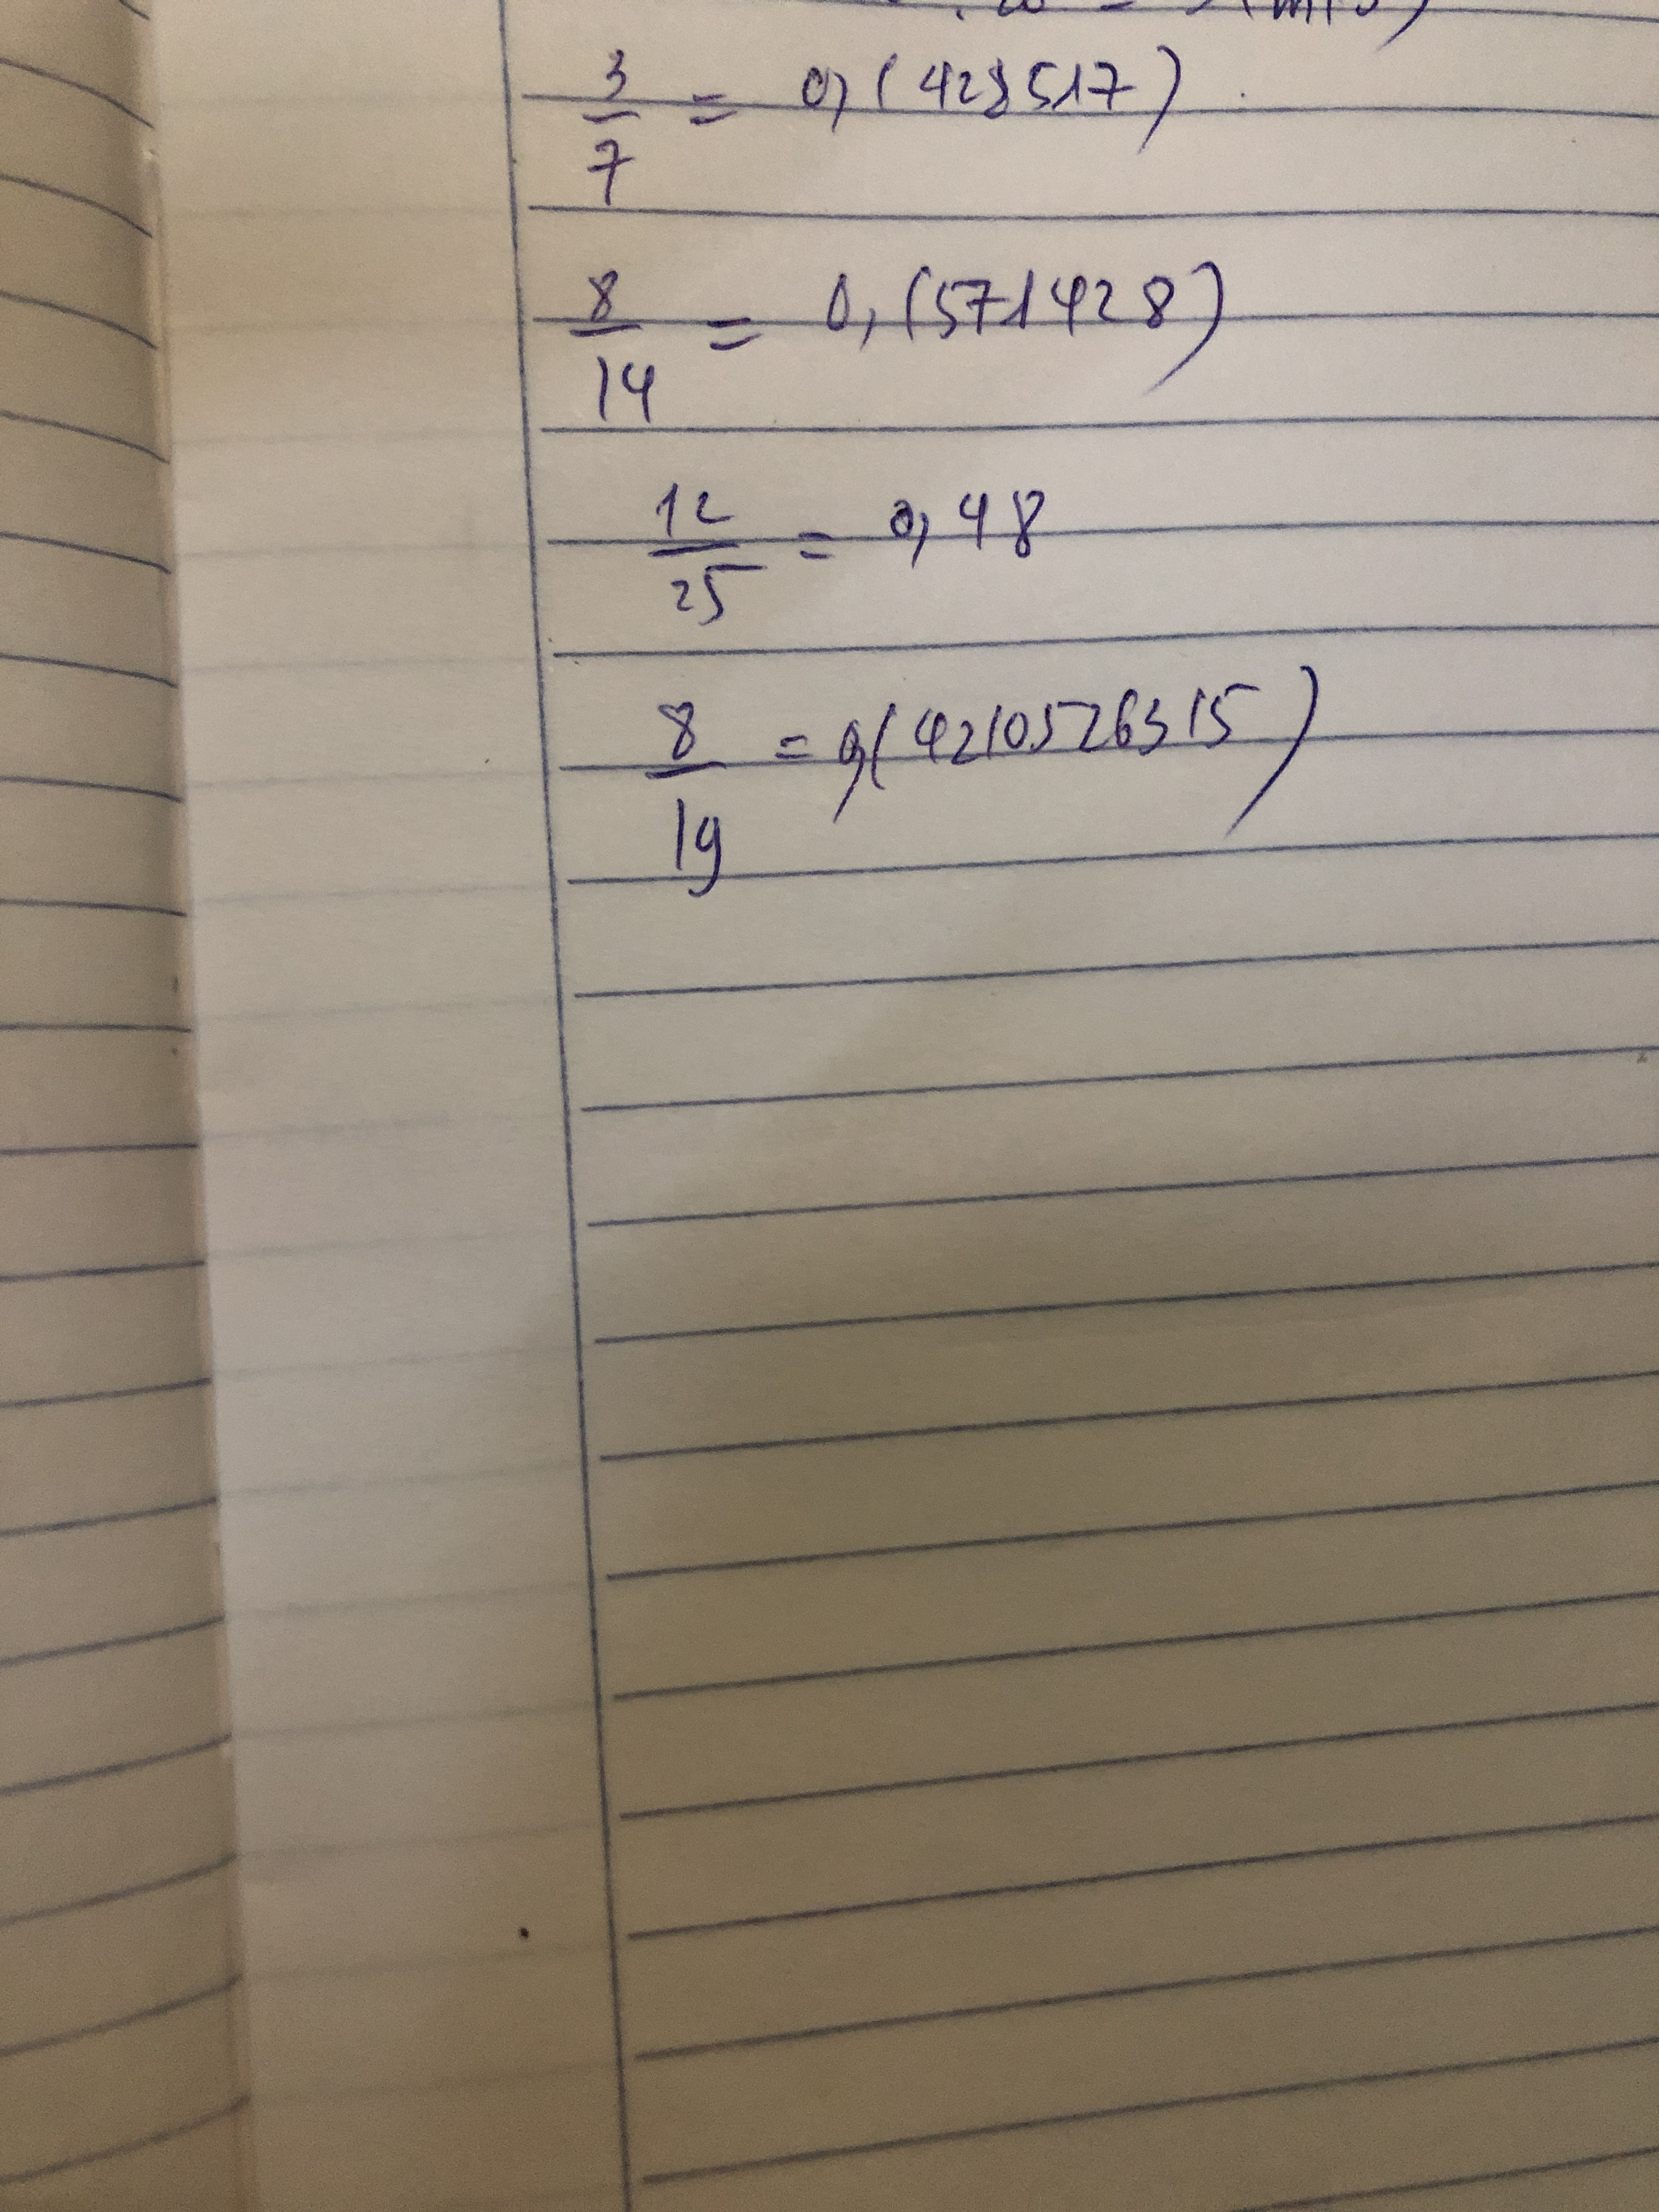 3/7 = 0,(428517)
8/14 = 0,(571428)
12/25 = 0,48
8/19 = 0,(4210526315)